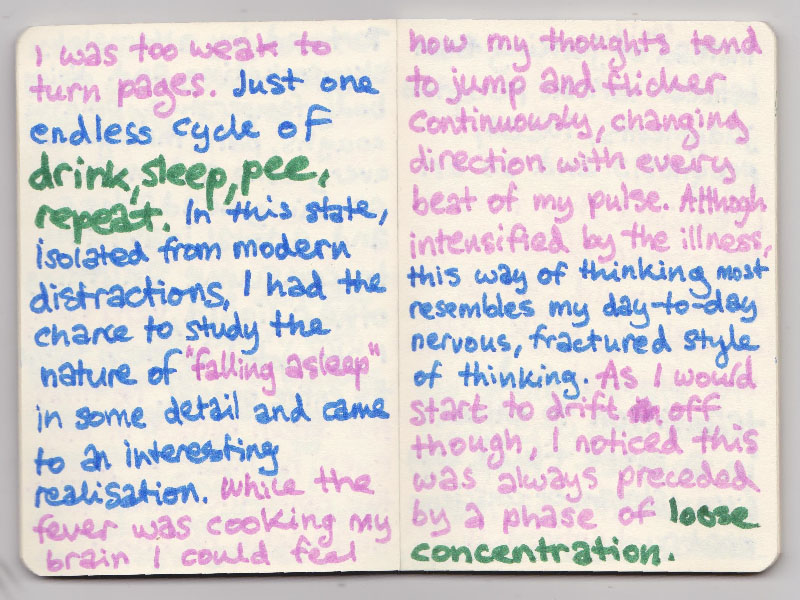 I was too weak to
turn pages. Just one
endless cycle of
drink, sleep, pee,
repeat. In this state,
isolated from modern
distractions, I had the
chance to study the
nature of "falling asleep"
in some detail and came
to an interesting
realisation. While the
fever was cooking my
brain I could feel
how my thoughts tend
to jump and flicker
continuously, changing
direction with every
beat of my pulse. Although
intensified by the illness,
this way of thinking most
resembles my day-to-day
nervous, fractured style
of thinking. As I would
start to drift off
though, I noticed this
was always preceded
by a phase of loose
concentration.